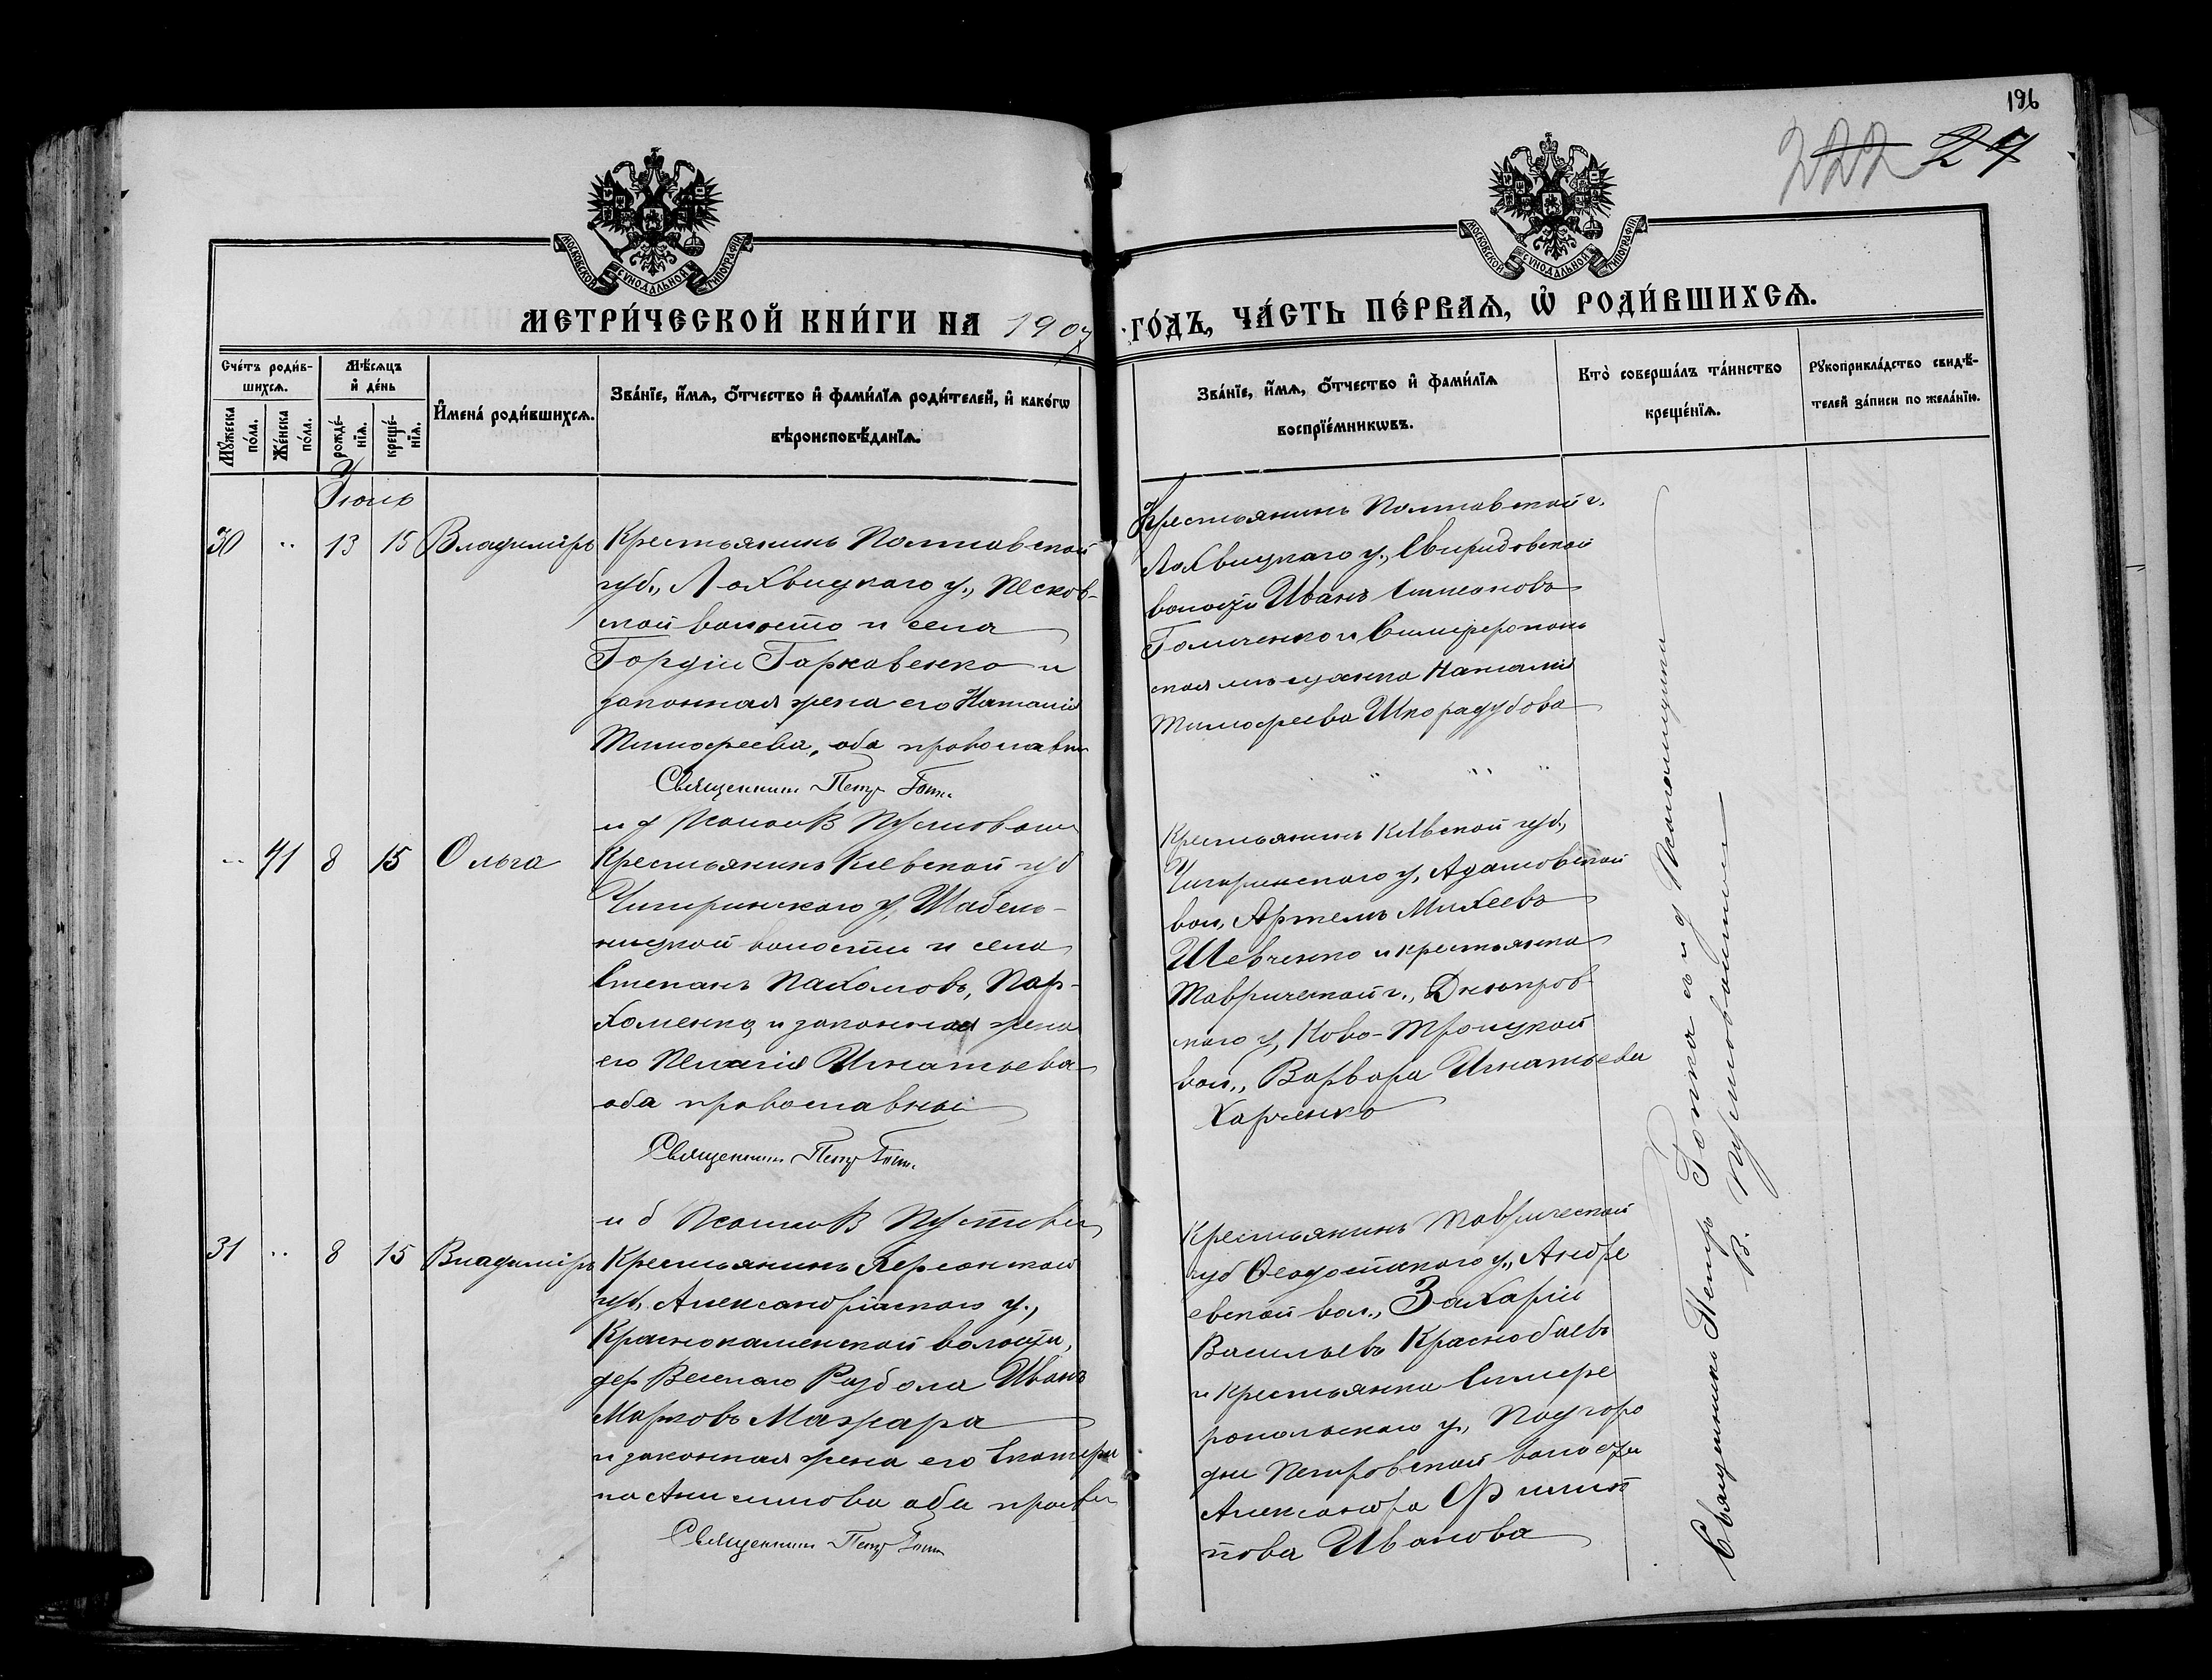 196
222 27
МОСКОВСКОЙ СѴНОДАЛЬНОЙ ТИПОГРАФІИ
МОСКОВСКОЙ СѴНОДАЛЬНОЙ ТИПОГРАФІИ
МЕТРИ́ЧЕСКОЙ КНИ́ГИ НА 1907
ГО́ДЪ, ЧА́СТЬ ПЕ́РВАѦ, Ѡ҆ РОДИ́ВШИХСѦ.
Сче́тъ роди́в-
шихсѧ.
Мꙋ́жеска по́ла.
Же́нска по́ла.
Мѣ́сѧцъ
и҆ де́нь
рожде́-
нїѧ.
креще́-
нїѧ.
И҆мена̀ роди́вшихсѧ.
Зва́нїе, и҆́мѧ, ѻ҆́тчество и҆ фами́лїѧ роди́телей, и҆ како́гѡ
вѣроисповѣ́данїѧ.
Зва́нїе, и҆́мѧ, ѻ҆́тчество и҆ фами́лїѧ
воспрїе́мникѡвъ.
Кто̀ соверша́лъ та́инство
креще́нїѧ.
Рꙋкоприкла́дство свидѣ́-
телей за́писи по жела́нїю.
Іюль
30 " 13 15 Владиміръ
Крестьянинъ Полтавской
губ., Лохвицкаго у., Песков-
ской волости и села
Гордій Гарковенко и
законная жена его Наталія
Тимофеева, оба православн
Священникъ Петр
и д Псалом В Пустовой
Крестьянинъ Полтавской г.
Лохвицкаго у., Свиридовской
волости Иванъ Симеоновъ
и Симферополь
ская мѣщанка Наталія
Тимофеева Шкорадубова
" 41 8 15 Ольга
Крестьянинъ Кіевской губ
Чигиринскаго у, Шабель-
ницкой волости и села
Степанъ Пахомовъ, Пар-
хоменко и законная жена
его Пелагія Игнатьева
оба православные
Священникъ Петр
Крестьянинъ Кіевской губ,
Чигиринскаго у, Адамовской
вол, Артемъ Михеевъ
Шевченко и крестьянка
Таврической г., Днѣпров-
скаго у, Ново-Троицкой
вол., Варвара Игнатьева
Харченко
31 " 8 15 Владиміръ
Крестьянинъ Херсонской
губ, Александрійскаго у.,
Краснокаменской волости,
дер Веселаго Раздола Иванъ
Марковъ Мажара
и законная жена его Екатери
на Анисимова оба правосл
Священникъ Петр
Крестьянинъ Таврической
губ Ѳеодосійскаго у., Андре
евской вол., Захарій
Васильевъ Краснобаевъ
и крестьянка Симфе
ропольскаго у, Подгоро
дне Петровской волости
Александра Филип
пова Иванова
Священникъ Петръ и д Псаломщика
В. Пустовойтовъ